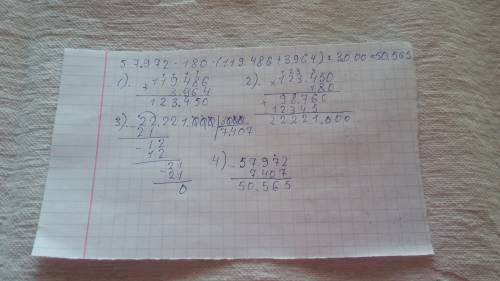 57.972 - 180 · (119.486 + 3964) : 30.00 = 50.565
1). 119.486
+ 3.964
123.450
2) × 123.450
180
+ 98.765
12345
22221.000
3). 22.221.000 3000
21 7407
- 12
12
- 21
21
0
4) - 57972
7407
50.565